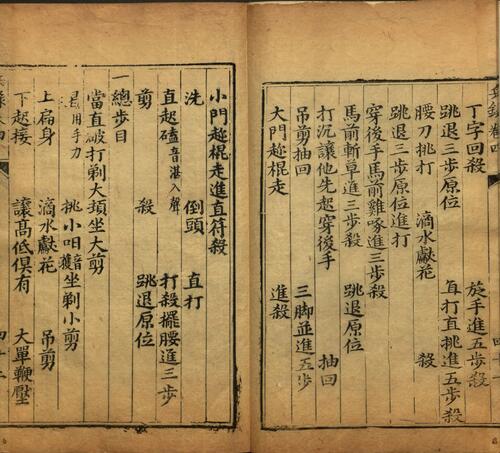 丁字回殺 旋手進五步殺
跳退三步原位 直打直挑進五步殺
腰刀挑打 滴水獻花 殺
跳退三步原位進打
穿後手馬前雞啄進三步殺
馬前斬草進三步殺 跳退原位
打沉讓他先起穿後手 抽回
吊剪抽回 三脚並進五步
大門趂棍走 進殺
小門趂棍走進直符殺
洗 倒頭 直打
直起磕音湛入聲 打殺擺腰進三步
剪 殺 跳退原位
一總步目
當直破打剃大頭坐大剪
是用手刃 挑小呾音獲坐剃小剪
上扁身 滴水獻花 吊剪
下起接 讓高低俱有 大單鞭壓